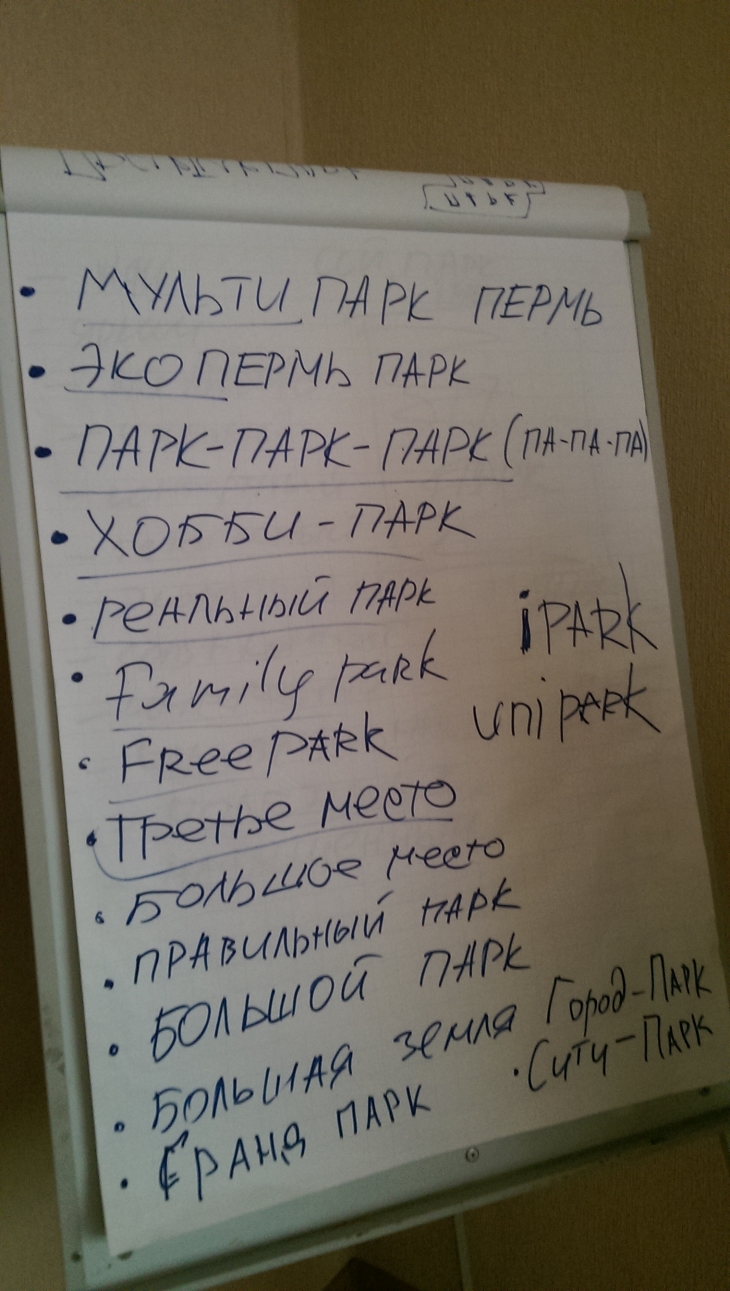 • МУЛЬТИ ПАРК ПЕРМЬ
• ЭКОПЕРМЬ ПАРК
• ПАРК-ПАРК-ПАРК (ПА-ПА-ПА)
• ХОББИ-ПАРК
• реальный ПАРК
iPARK
• Family park
uniPARK
• Free PARK
• Третье место
• Большое место
• ПРАВИЛЬНЫЙ ПАРК
• БОЛЬШОЙ ПАРК
• БОЛЬШАЯ земля
Город-Парк
• Сити-Парк
• ГРАНД ПАРК